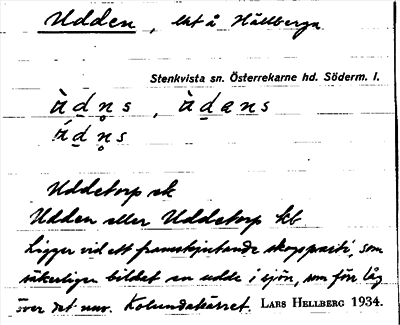 Udden, lht å Hällberga
Stenkvista sn. Österrekarne hd. Söderm. l.
ὰd̲n̥s, ὰd̲ans
ád̲n̥s
Uddetorp ek
Udden eller Uddetorp kb
Ligger vid ett framskjutande skogsparti, som
säkerligen bildat en udde i sjön, som förr låg
över det nuv. Kolundakärret. LARS HELLBERG 1934.